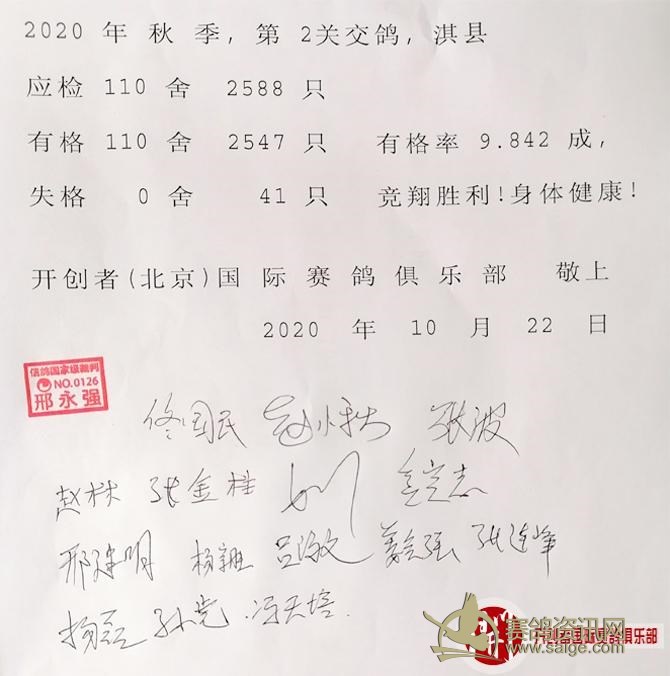 2020 年 秋 季, 第 2关交鸽, 淇县
应检 110 舍 2588 只
有格 110 舍 2547 只 有格率 9.842 成,
失格 0 舍 41 只 竞翔胜利!身体健康!
开创者(北京)国 际 赛 鸽 俱 乐 部 敬上
2020 年 10 月 22 日
信鸽国家级裁判
NO.0126
邢永强
佟国民 张波
赵林 张金柱
邢建明 杨雅 张连峰
杨磊 孙光 冯天培
赛鸽资讯网
www.saige.com
开创者国际赛鸽俱乐部